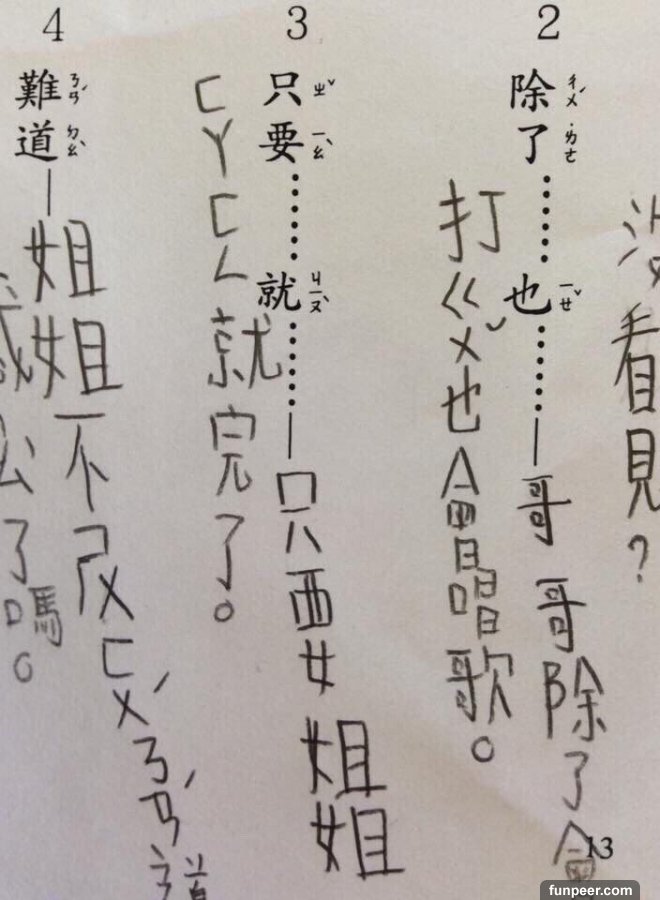 沒看見？
2
除ㄔㄨˊ了˙ㄌㄜ……也ㄧㄝˇ……—哥哥除了會
打ㄍㄨˇ也會唱歌。
3
只ㄓˇ要ㄧㄠˋ……就ㄐㄧㄡˋ……—只要姐姐
ㄈㄚㄈㄥ就完了。
4
難ㄋㄢˊ道ㄉㄠˋ—姐姐不ㄕㄨㄈㄨˊㄋㄢˊ道
了嗎。
13
funpeer.com